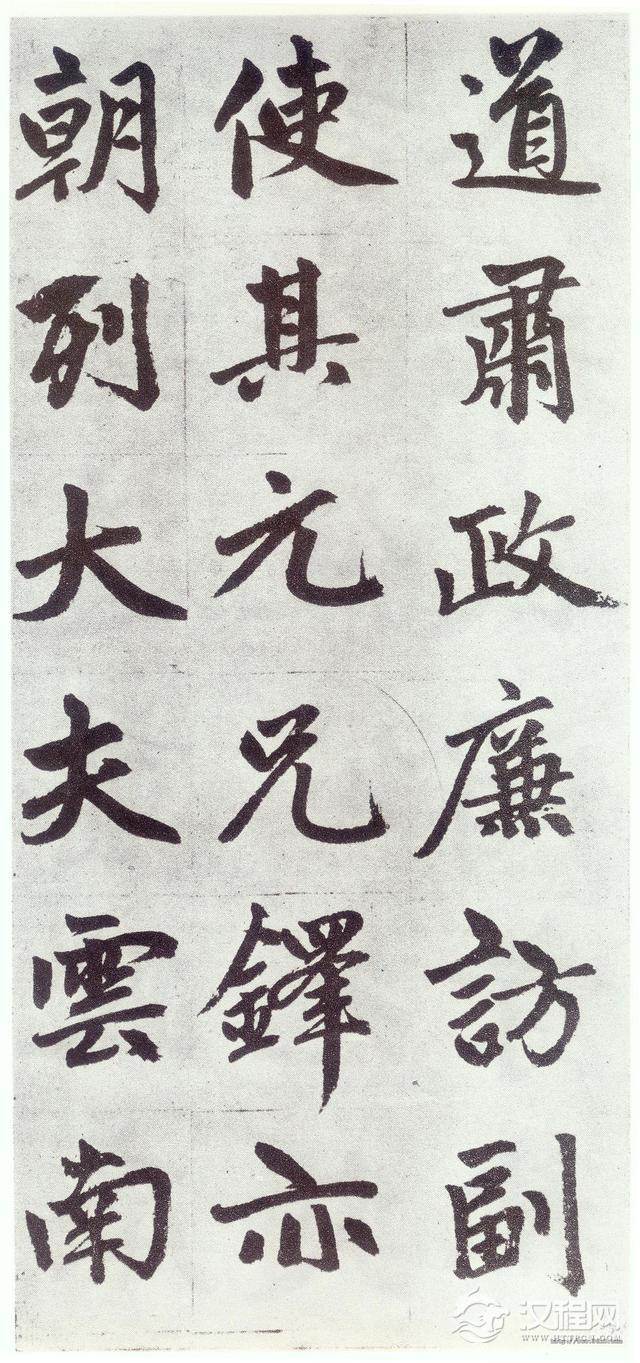 道肅政廉訪副
使其元兄鐸亦
朝列大夫雲南
汉程网
WWW.HTTPCN.COM